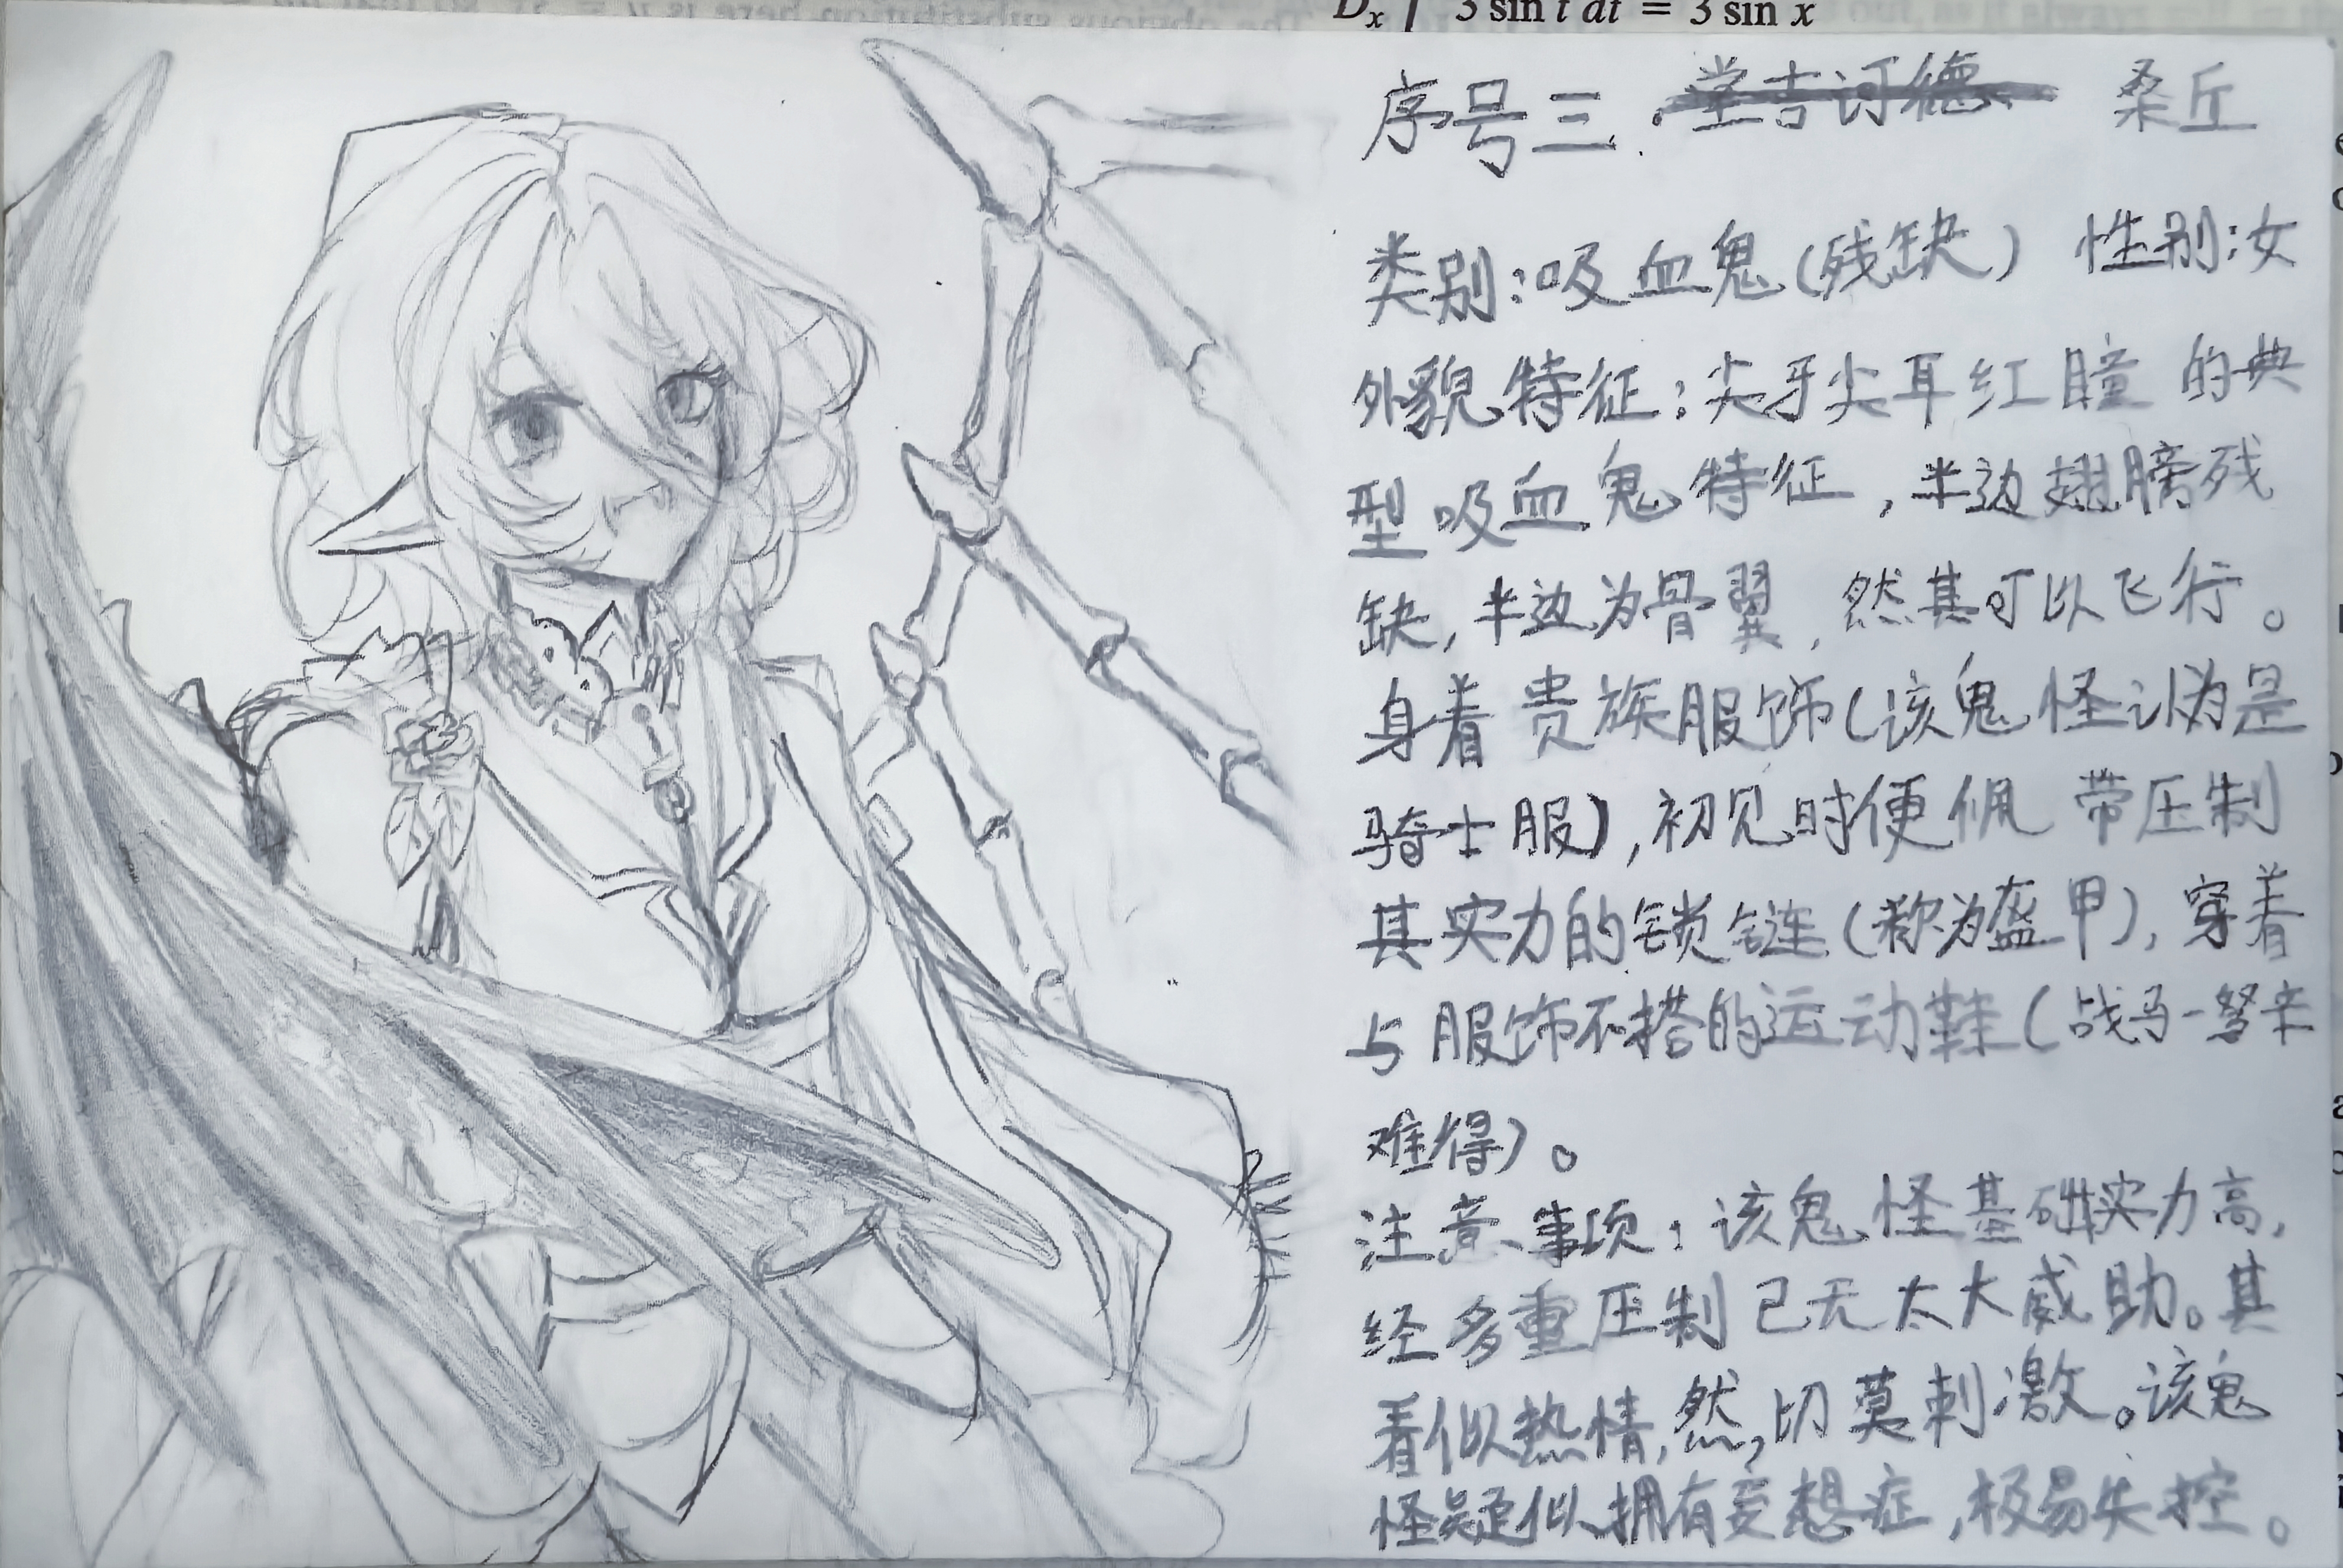 D_x ∫ 3 sin t dt = 3 sin x
序号三. 堂吉诃德 桑丘
类别:吸血鬼(残缺) 性别:女
外貌特征:尖牙尖耳红瞳的典
型吸血鬼特征,半边翅膀残
缺,半边为骨翼,然其可以飞行。
身着贵族服饰(该鬼怪认为是
骑士服),初见时便佩带压制
其实力的锁链(称为盔甲),穿着
与服饰不搭的运动鞋(战马-驽辛
难得)。
注意事项:该鬼怪基础实力高,
经多重压制已无太大威助。其
看似热情,然,切莫刺激。该鬼
怪疑似拥有妄想症,极易失控。